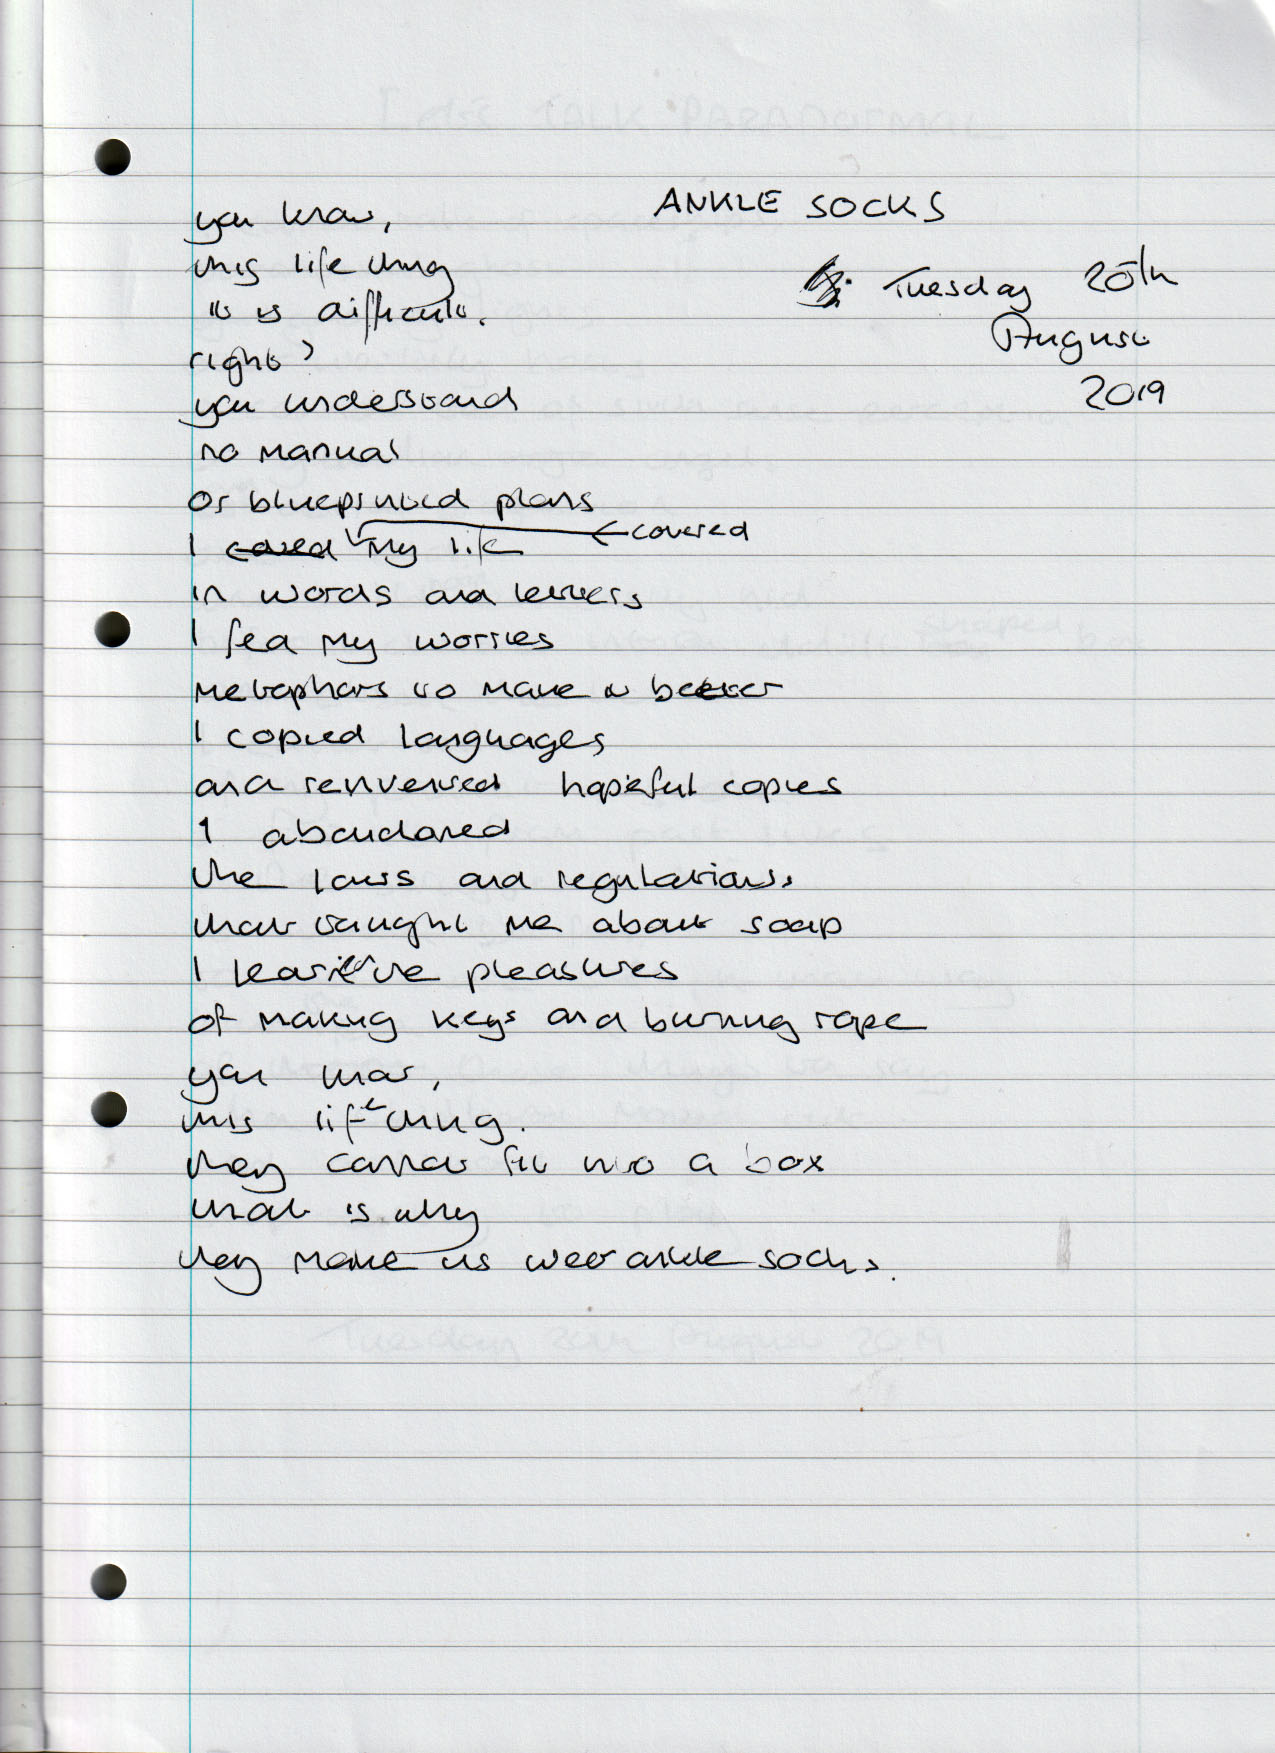 ANKLE SOCKS
Tuesday 20th
August
2019
you know,
this life thing
it is difficult.
right?
you understand
no manual
or blueprinted plans
I covered my life
in words and letters
I fed my worries
metaphors to make it better
I copied languages
and reinvented hopeful copies
I abandoned
the laws and regulations
that taught me about soap
I learn the pleasures
of making keys and burning rope
you know,
this life thing.
they cannot fit into a box
that is why
they make us wear ankle socks.